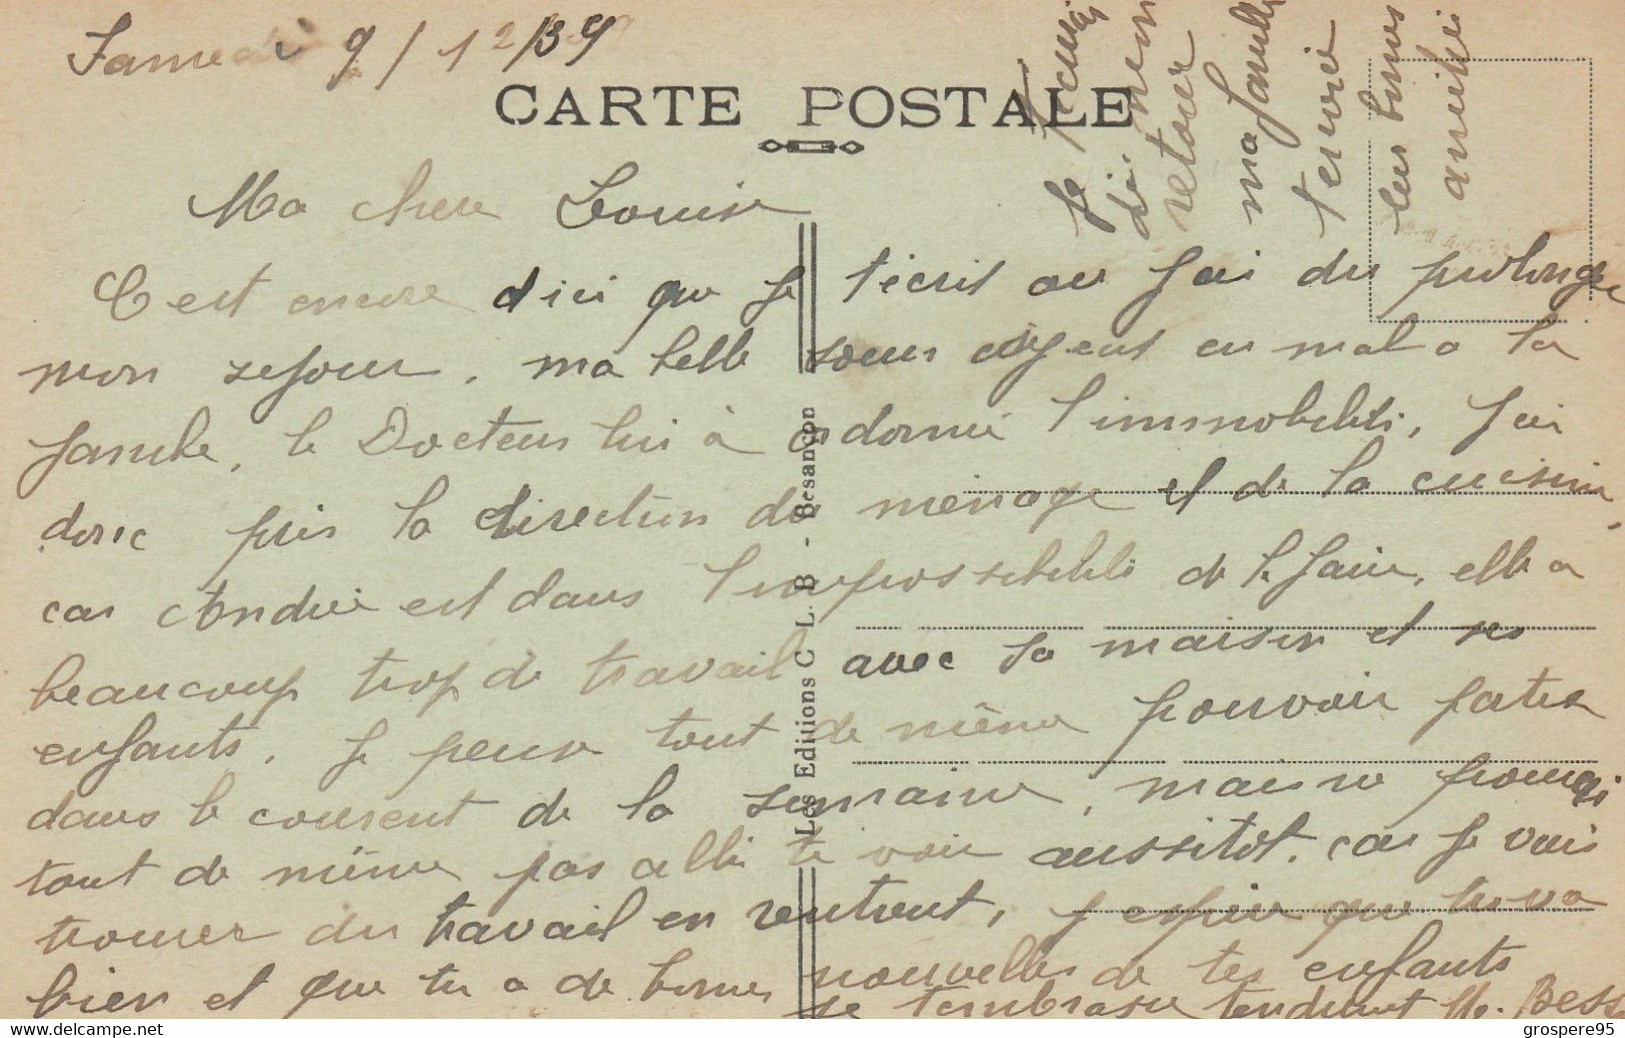 Samedi 9/12/39
CARTE POSTALE
Ma chere Louise
C'est encore d'ici que je t'écrit ou j'ai du prolonge
mon sejour, ma belle soeur ayent eu mal a la
jambe, le Docteur lui à ordonné l'immobilité, j'ai
donc pris la direction du menage et de la cuisine,
car Andrée est dans l'impossibilité de le faire, elle a
beaucoup trop de travail avec sa maison et ses
enfants. Je pense tout de même pouvoir partir
dans le courent de la semaine, mais ne pourrai
tout de même pas allé te voir aussitot. car je vais
trouver du travail en rentrent, j'espère que tu va
bien et que tu a de bonnes nouvelles de tes enfants
je t'embrasse tendrement M. Bess
Je t'écrirai
de mon
retour
ma famille
t'envoie
ses bonnes
amitiés
Les Editions C L. B - Besançon
https://www.delcampe.net
grospere95